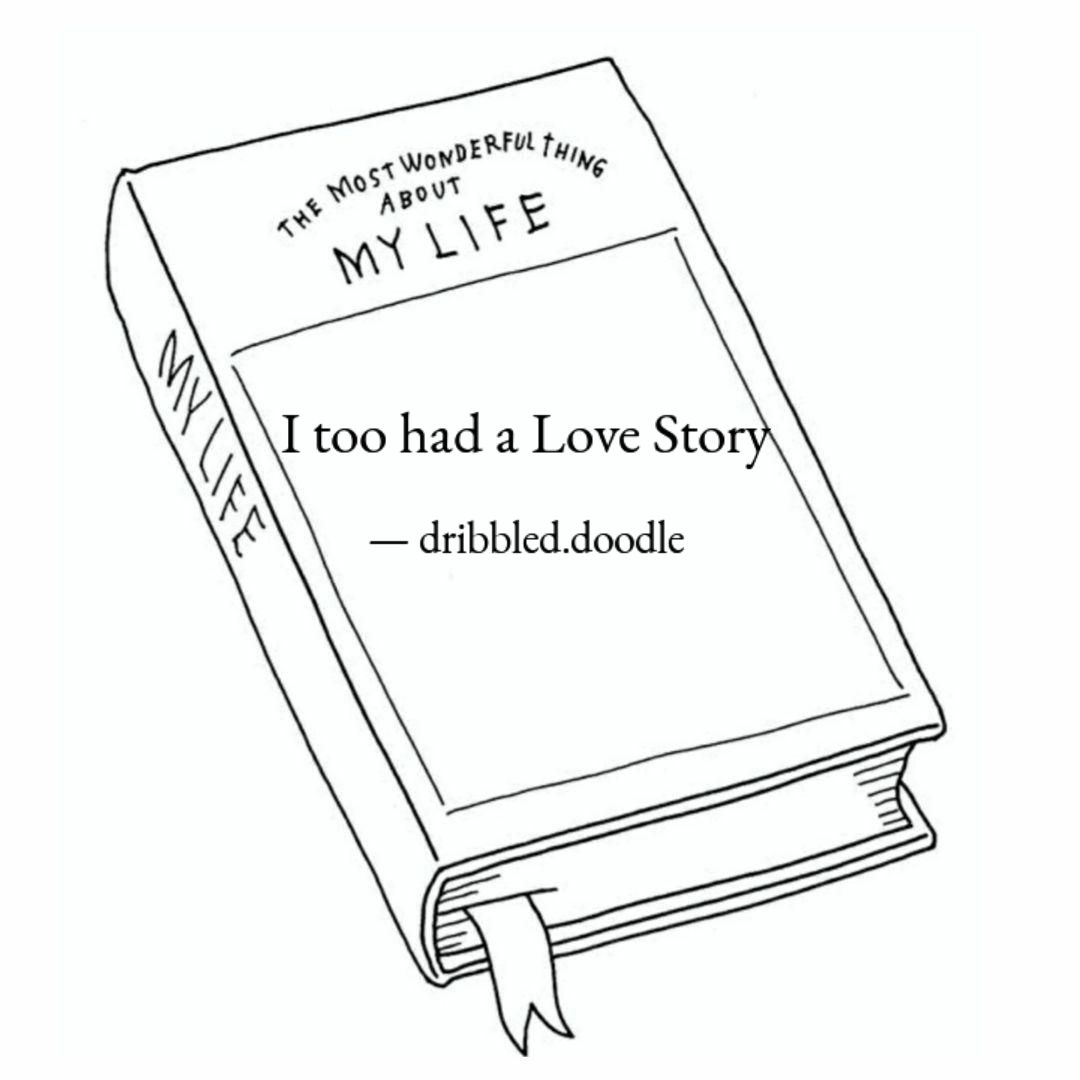 THE MOST WONDERFUL THING
ABOUT
MY LIFE
MY LIFE
I too had a Love Story
— dribbled.doodle